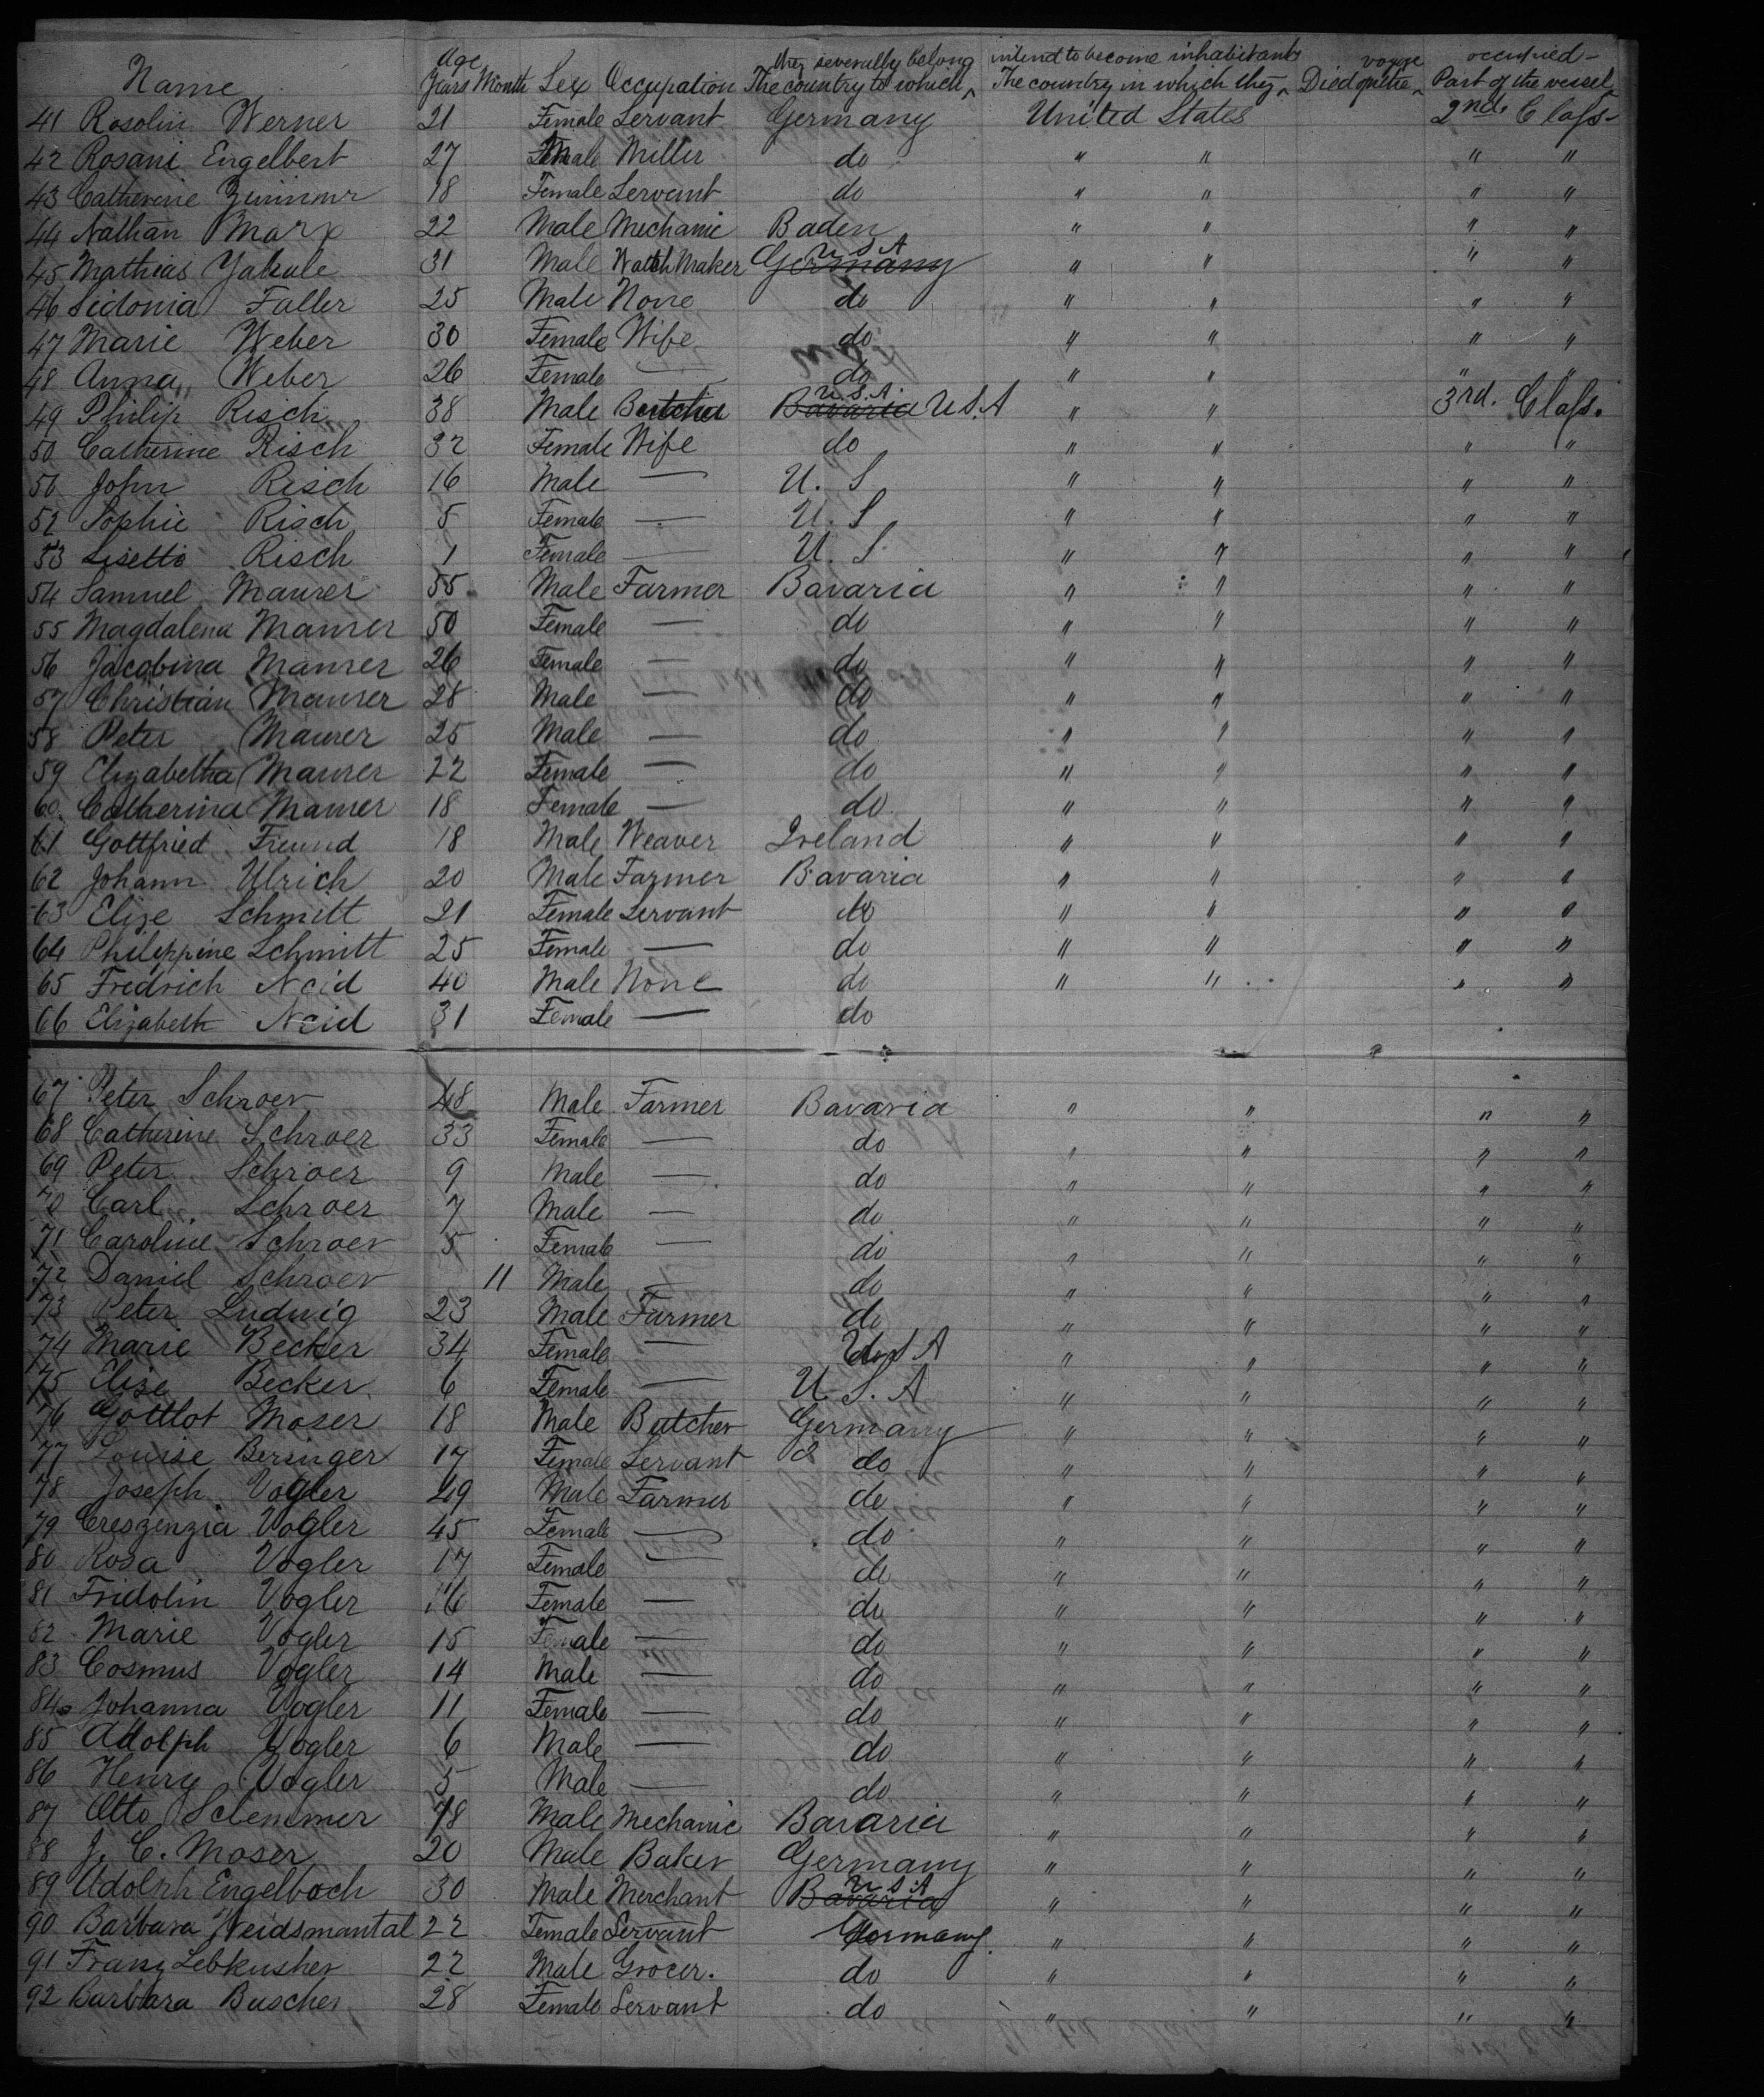 Name Age Years Month Sex Occupation The country to which they severally belong The country in which they intend to become inhabitants Died on the voyage Part of the vessel occupied
41 Rosolin Werner 21 Female Servant Germany United States 2nd. Class
42 Rosani Engelbert 27 Male Miller do " " " "
43 Catherine 18 Female Servant do " " " "
44 Nathan Marx 22 Male Mechanic Baden " " " "
45 Mathias 31 Male Watch Maker Germany U S A " " " "
46 Sidonia Faller 25 Male None do " " " "
47 Marie Weber 30 Female Wife do " " " "
48 Anna Weber 26 Female — do " " " "
49 Philip Risch 38 Male Butcher Bavaria U.S.A U S.A " " 3rd. Class.
50 Catherine Risch 32 Female Wife do " " " "
51 John Risch 16 Male — U. S " " " "
52 Sophie Risch 5 Female — U. S " " " "
53 Lisetto Risch 1 Female — U. S. " " " "
54 Samuel Maurer 55 Male Farmer Bavaria " " " "
55 Magdalena Maurer 50 Female — do " " " "
56 Jacobina Maurer 26 Female — do " " " "
57 Christian Maurer 28 Male — do " " " "
58 Peter Maurer 25 Male — do " " " "
59 Elizabetha Maurer 22 Female — do " " " "
60 Catherina Maurer 18 Female — do " " " "
61 Gottfried Freund 18 Male Weaver Ireland " " " "
62 Johann Ulrich 20 Male Farmer Bavaria " " " "
63 Elise Schmitt 21 Female Servant do " " " "
64 Philippine Schmitt 25 Female — do " " " "
65 Fredrich Neid 40 Male None do " " " "
66 Elizabeth Neid 31 Female — do
67 Peter Schroer 48 Male Farmer Bavaria " " " "
68 Catherine Schroer 33 Female — do " " " "
69 Peter Schroer 9 Male — do " " " "
70 Carl Schroer 7 Male — do " " " "
71 Caroline Schroer 5 Female — do " " " "
72 Daniel Schroer 11 Male — do " " " "
73 Peter Ludwig 23 Male Farmer do " " " "
74 Marie Becker 34 Female — U S A " " " "
75 Elise Becker 6 Female — U. S. A " " " "
76 Gottlot Moser 18 Male Butcher Germany " " " "
77 Louise Beringer 17 Female Servant do " " " "
78 Joseph Vogler 49 Male Farmer do " " " "
79 Creszenzia Vogler 45 Female — do " " " "
80 Rosa Vogler 17 Female — do " " " "
81 Fridolin Vogler 16 Female — do " " " "
82 Marie Vogler 15 Female — do " " " "
83 Cosmus Vogler 14 Male — do " " " "
84 Johanna Vogler 11 Female — do " " " "
85 Adolph Vogler 6 Male — do " " " "
86 Henry Vogler 5 Male — do " " " "
87 Otto Sclemmer 18 Male Mechanic Bavaria " " " "
88 J. C. Moser 20 Male Baker Germany " " " "
89 Adolph Engelboch 30 Male Merchant Bavaria U S A " " " "
90 Barbara Weidsmantal 22 Female Servant Germany " " " "
91 Franz Lebkusher 22 Male Grocer. do " " " "
92 Barbara Buscher 28 Female Servant do " " " "